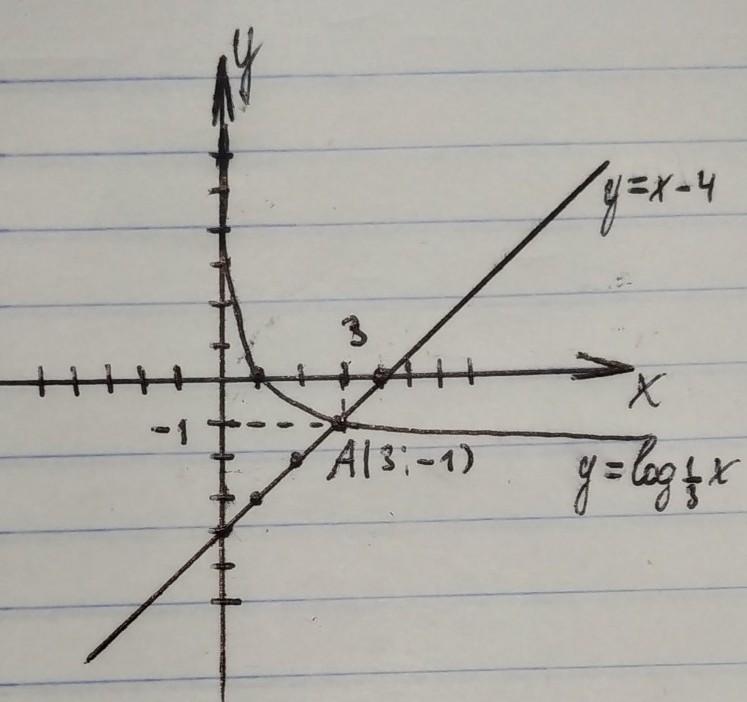 y
y=x-4
3
x
-1
A(3;-1)
y=log⅓x